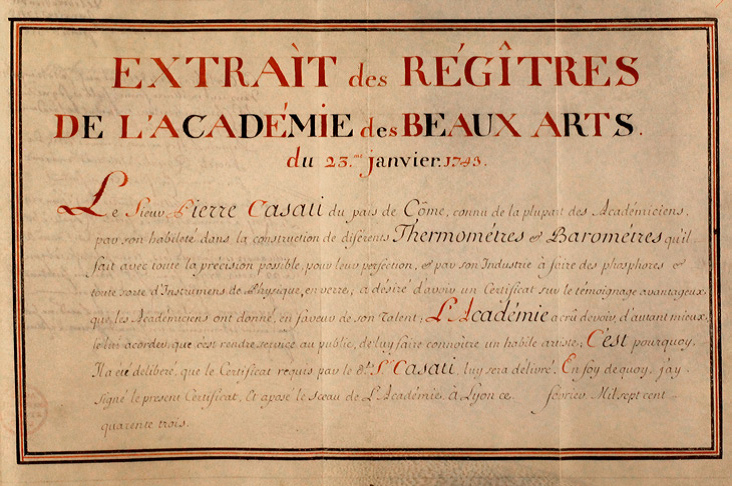 EXTRAIT des RÉGÎTRES
DE L'ACADÉMIE des BEAUX ARTS.
du 23.me janvier. 1743.
Le Sieur Pierre Casati du païs de Côme, connu de la plupart des Académiciens,
par son habileté dans la construction de diférents Thermométres & Barométres qu'il
fait avec toute la précision possible, pour leur perfection, & par son Industrie à faire des phosphores &
toute sorte d'Instrumens de Physique, en verre, a désiré d'avoir un Certificat sur le témoignage avantageux,
que les Académiciens ont donné, en faveur de son Talent; L'Académie a crû devoir, d'autant mieux,
le lui acorder, que c'est rendre service au public, de luy faire connoître un habile artiste; C'est pourquoy,
Il a eté déliberé, que le Certificat requis par le d.t S.r Casati, luy sera délivré. En foy de quoy, j'ay
signé le present Certificat, Et aposé le sceau de L'Académie, à Lyon ce février Mil sept cent
quarente trois.